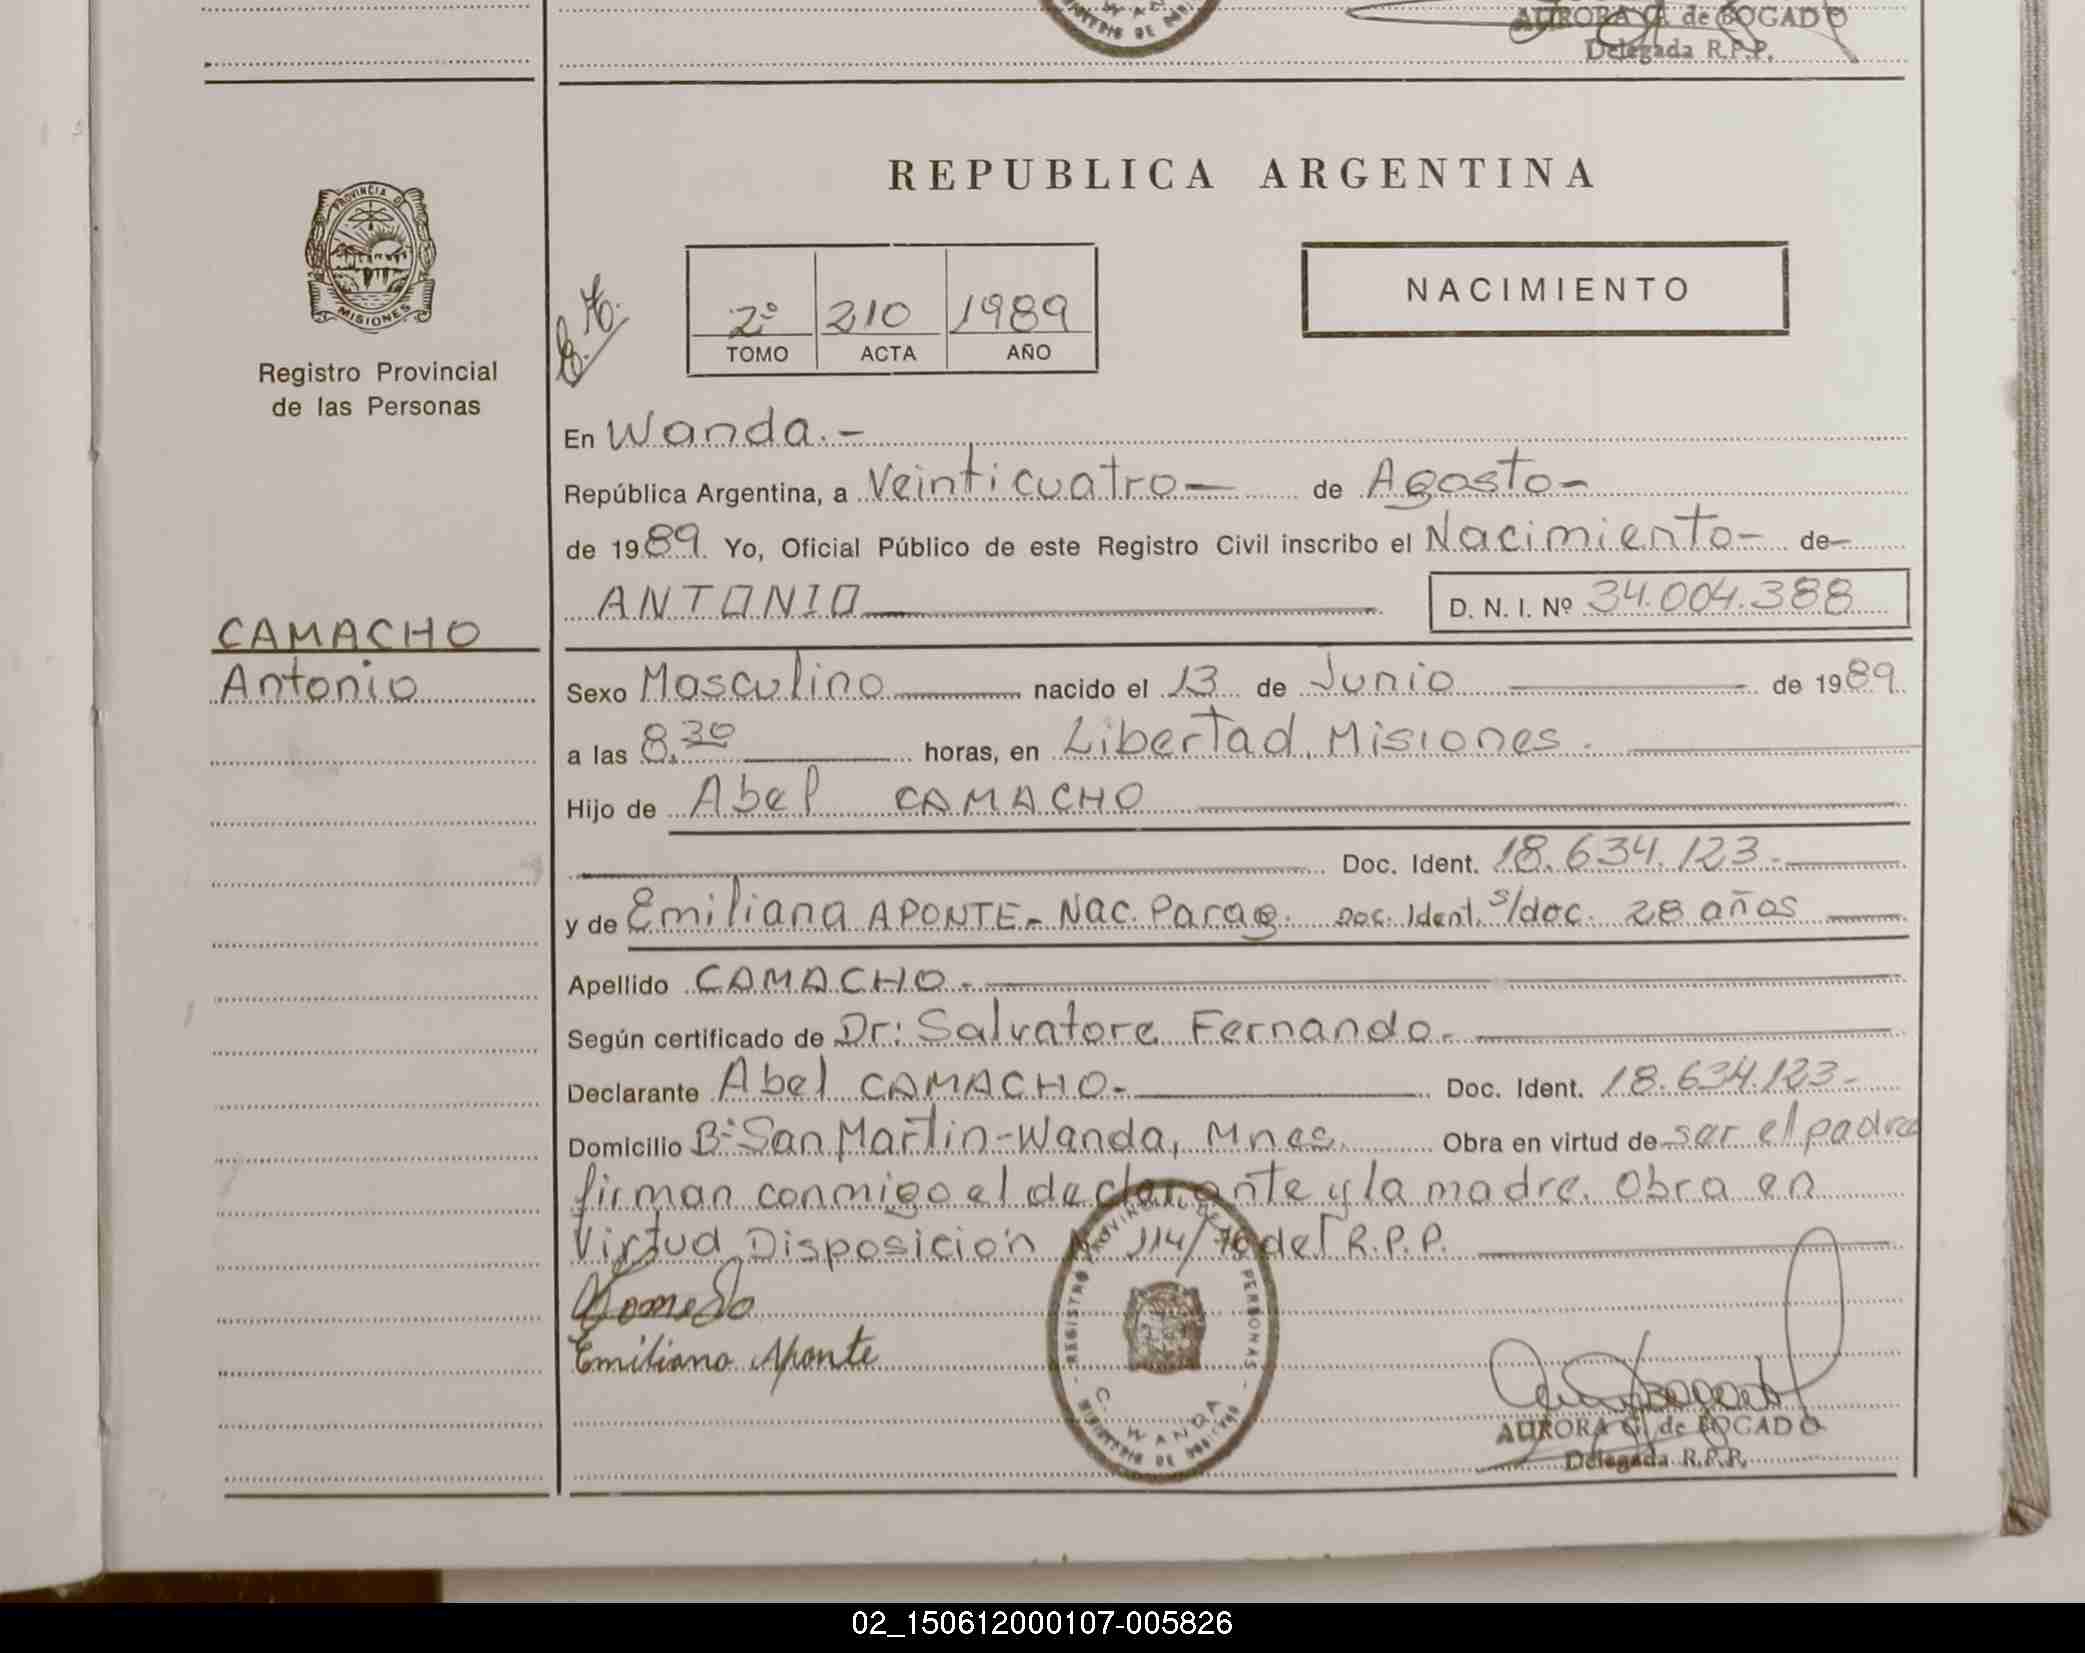 AURORA G. de BOGADO
Delegada R.P.P.
REPUBLICA ARGENTINA
PROVINCIA DE
MISIONES
Registro Provincial
de las Personas
2º 210 1989
TOMO ACTA AÑO
NACIMIENTO
CAMACHO
Antonio
En Wanda.-
República Argentina, a Veinticuatro— de Agosto-
de 1989. Yo, Oficial Público de este Registro Civil inscribo el Nacimiento- de-
ANTONIO D. N. I. Nº 34.004.388
Sexo Masculino nacido el 13 de Junio de 1989.
a las 8.30 horas, en Libertad, Misiones.
Hijo de Abel CAMACHO
Doc. Ident. 18.634.123.-
y de Emiliana APONTE- Nac. Parag. Doc. Ident. s/doc. 28 años
Apellido CAMACHO.-
Según certificado de Dr: Salvatore Fernando.-
Declarante Abel CAMACHO.- Doc. Ident. 18.634.123-
Domicilio Bº San Martin-Wanda, Mnes. Obra en virtud de ser el padre
firman conmigo el declarante y la madre. Obra en
Virtud Disposición Nº 114/70 del R.P.P.
Emiliana Aponte
REGISTRO PROVINCIAL DE LAS PERSONAS
C. WANDA
AURORA G. de BOGADO
Delegada R.P.P.
02_150612000107-005826